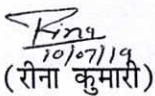 Rina
10/07/19
(रीना कुमारी)